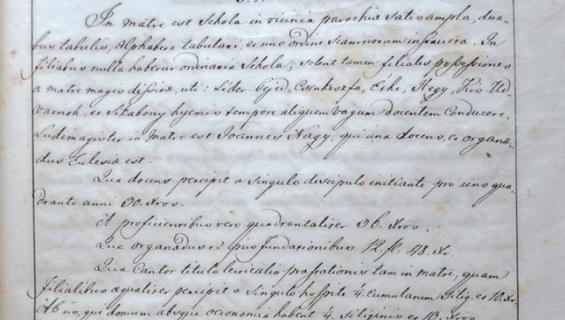 In matre est Schola in vicinia parochiæ satis ampla, dua-
bus tabulis, Alphabeto tabulari, et uno ordine Scamnorum instructa. In
filialibus nulla habetur ordinaria Schola; solent tamen filiales possessiones
a matre magis dissitæ, uti: Lidér Tejed, Csenkeszfa, Etke, Hegy, Kis Ud-
varnok, et Sikabony hyemis tempore aliquem vagum docentem Conducere.
Ludimagister in Matre est Joannes Nagy, qui una docens, et organæ-
dus Ecclesiæ est.
Qua docens percipit a Singulo discipulo initiante pro uno qua-
drante anni 30. Xros.
A proficientibus vero quadrantaliter 36. Xros.
Qua organædus ex piis fundationibus 12. fl. 48. Xr.
Qua Cantor titulo præstationis tam in matre, quam
filialibus æqualiter percipit a Singulo hospite 4. Cumulatam Silig. et 10. Xr.
qui domum absque oeconomia habent 4. Siliginis et 10. Xros.